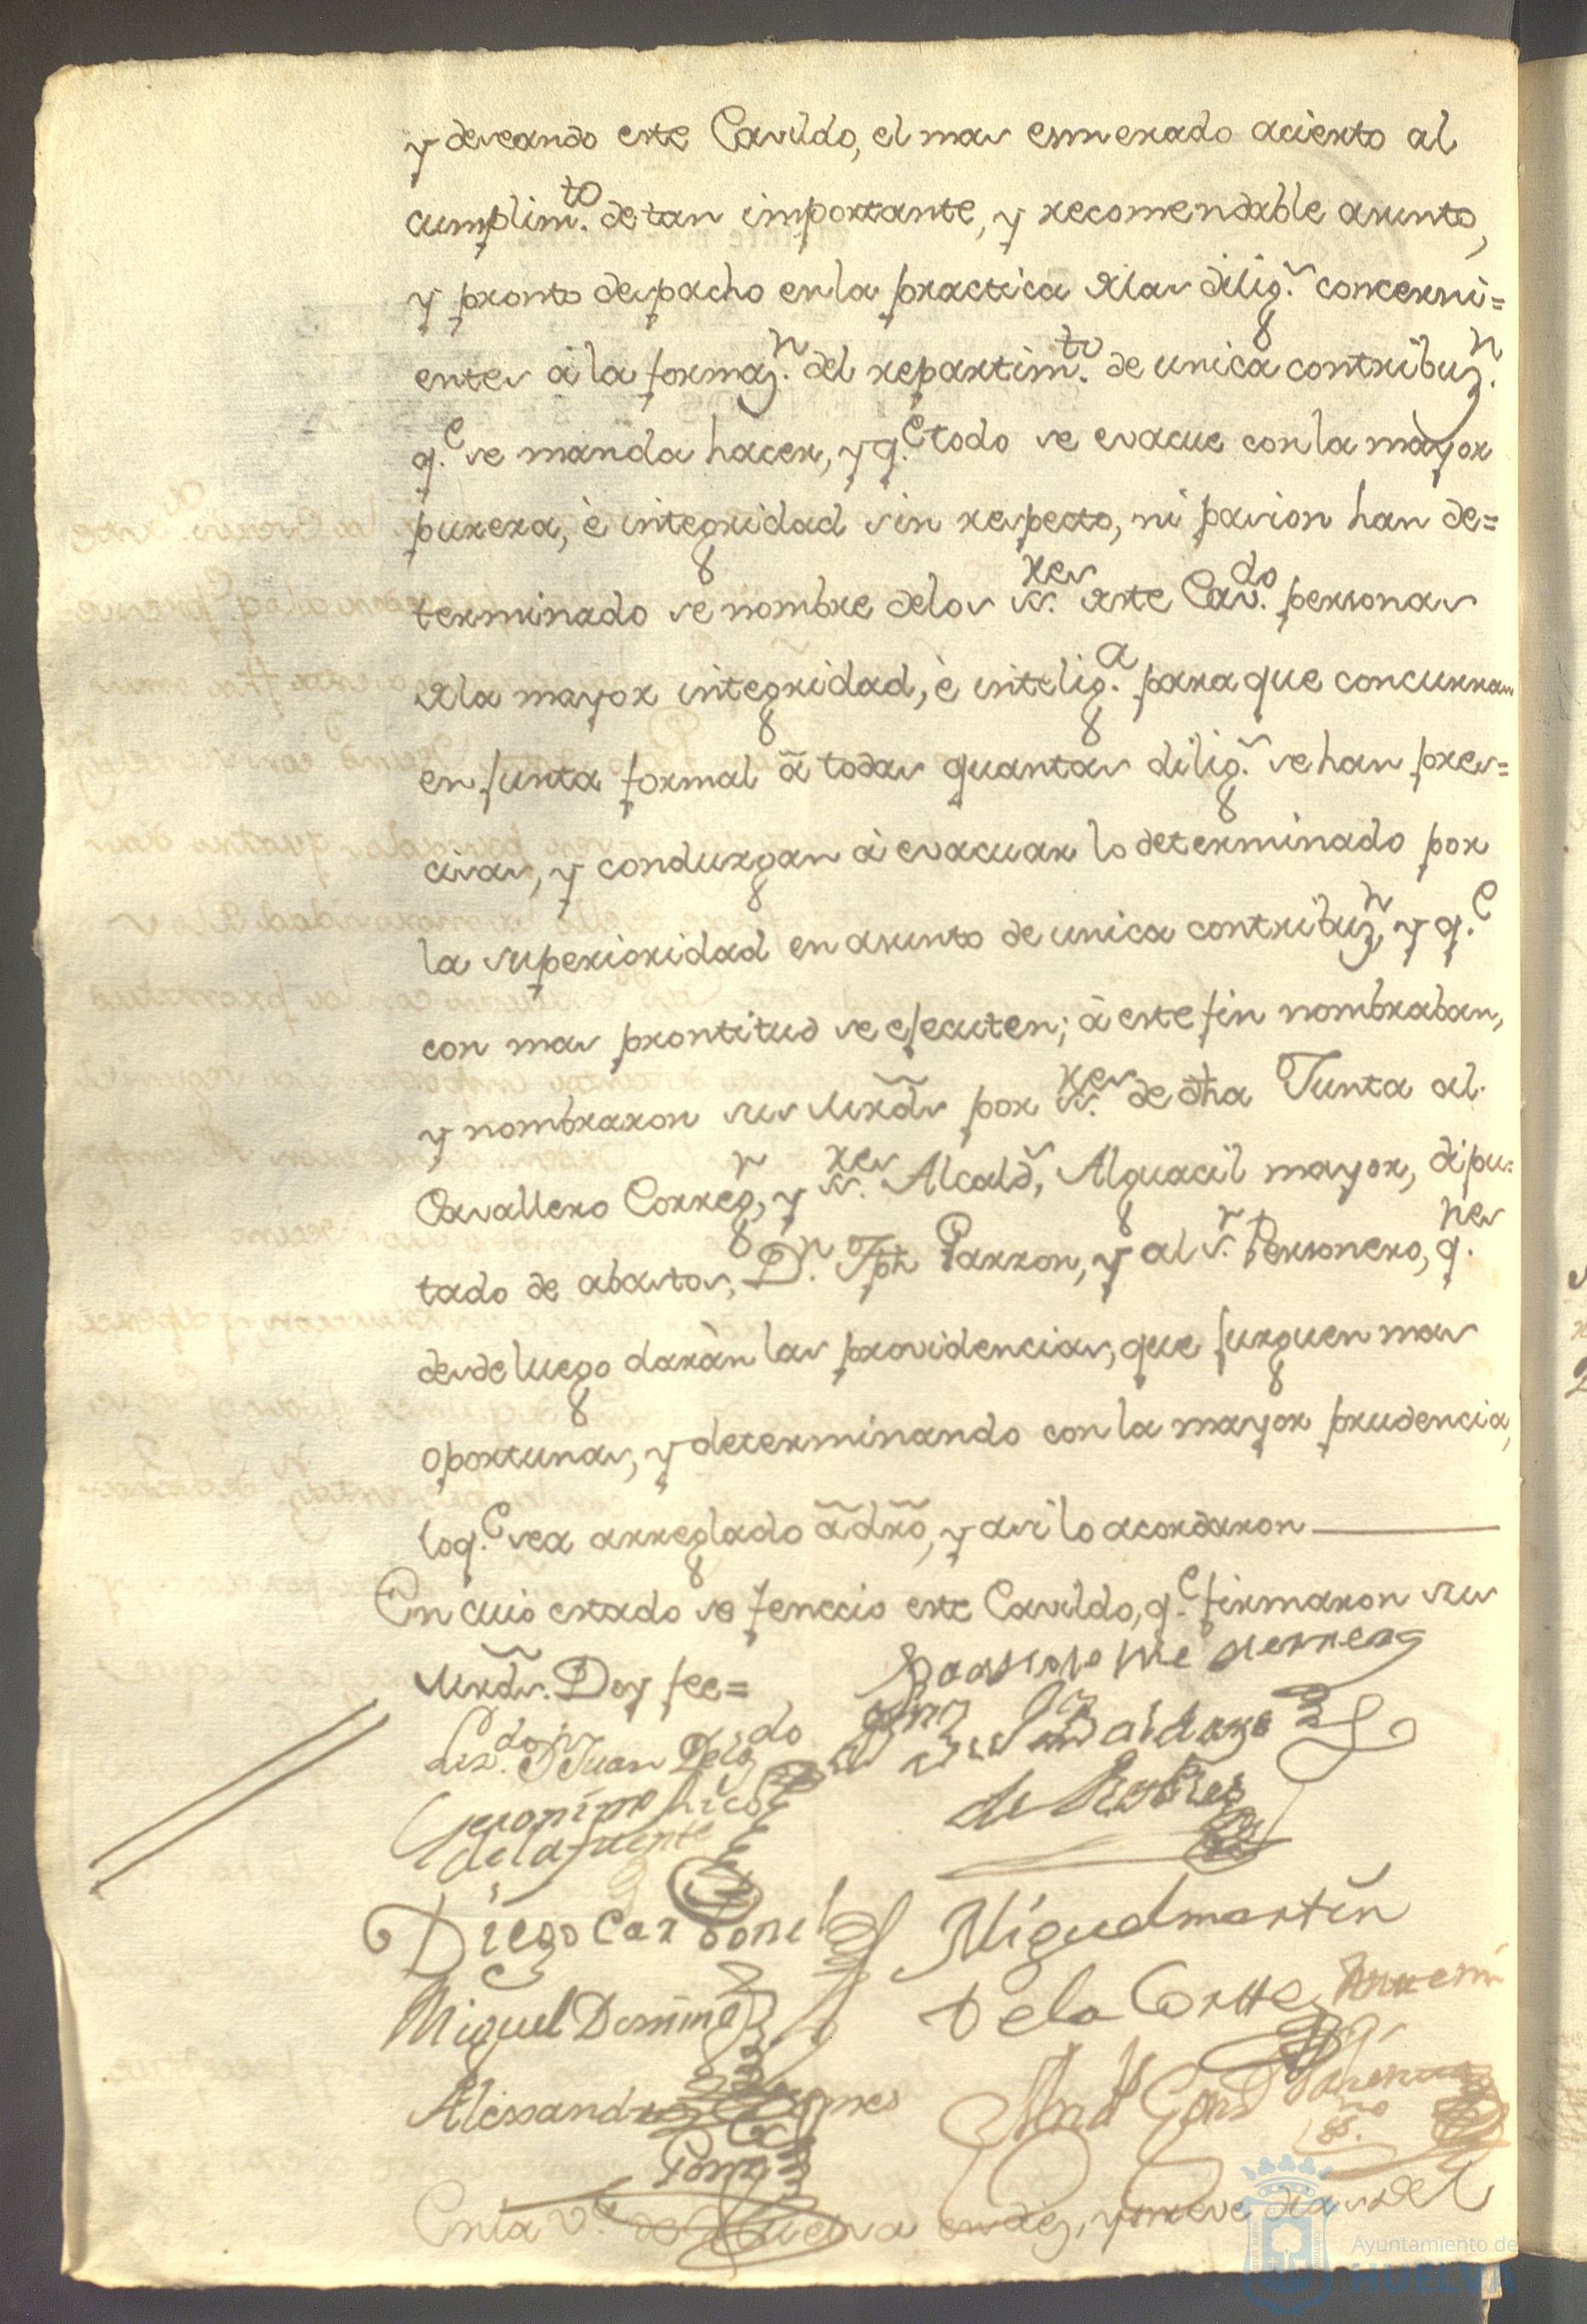 y deseando este Cavildo, el mas esmerado acierto al
cumplim.to de tan importante, y recomendable asunto,
y pronto despacho en la practica de las dilig.s concerni=
entes à la formaz.n del repartim.to de unica contribuz.n
q.e se manda hacer, y q.e todo se evacue con la mayor
pureza, è integridad sin respecto, ni pasion han de=
terminado se nombre de los ss.res de este Cav.do personas
de la mayor integridad, è intelig.a para que concurran
en junta formal â todas quantas dilig.s se han pres=
cisas, y conduzgan à evacuar lo determinado por
la superioridad en asunto de unica contribuz.n y q.e
con mas prontitud se ejecuten; à este fin nombraban,
y nombraron sus Mrds por ss.res de dha Junta al
Cavallero Correg.r, y ss.res Alcalds, Alguacil mayor, dipu=
tado de abastos, D.n Jph Parron, y al s.r Personero, q.nes
desde luego daràn las providencias, que jusguen mas
oportunas, y determinando con la mayor prudencia,
lo q.e sea arreglado â dro, y asi lo acordaron
En cuio estado se fenecio este Cavildo, q.e firmaron sus
Mrds. Doy fee=
Bartolome
Liz.do D.n Juan Delg.do
Geronimo Rico
de la fuente
de Robles
Diego Carbonel
Miguel martin
de la Corte
Miguel Doming
Alessandro
Ponz
En la V.a de Huelva en diez, y nueve dias del
Ayuntamiento de
HUELVA